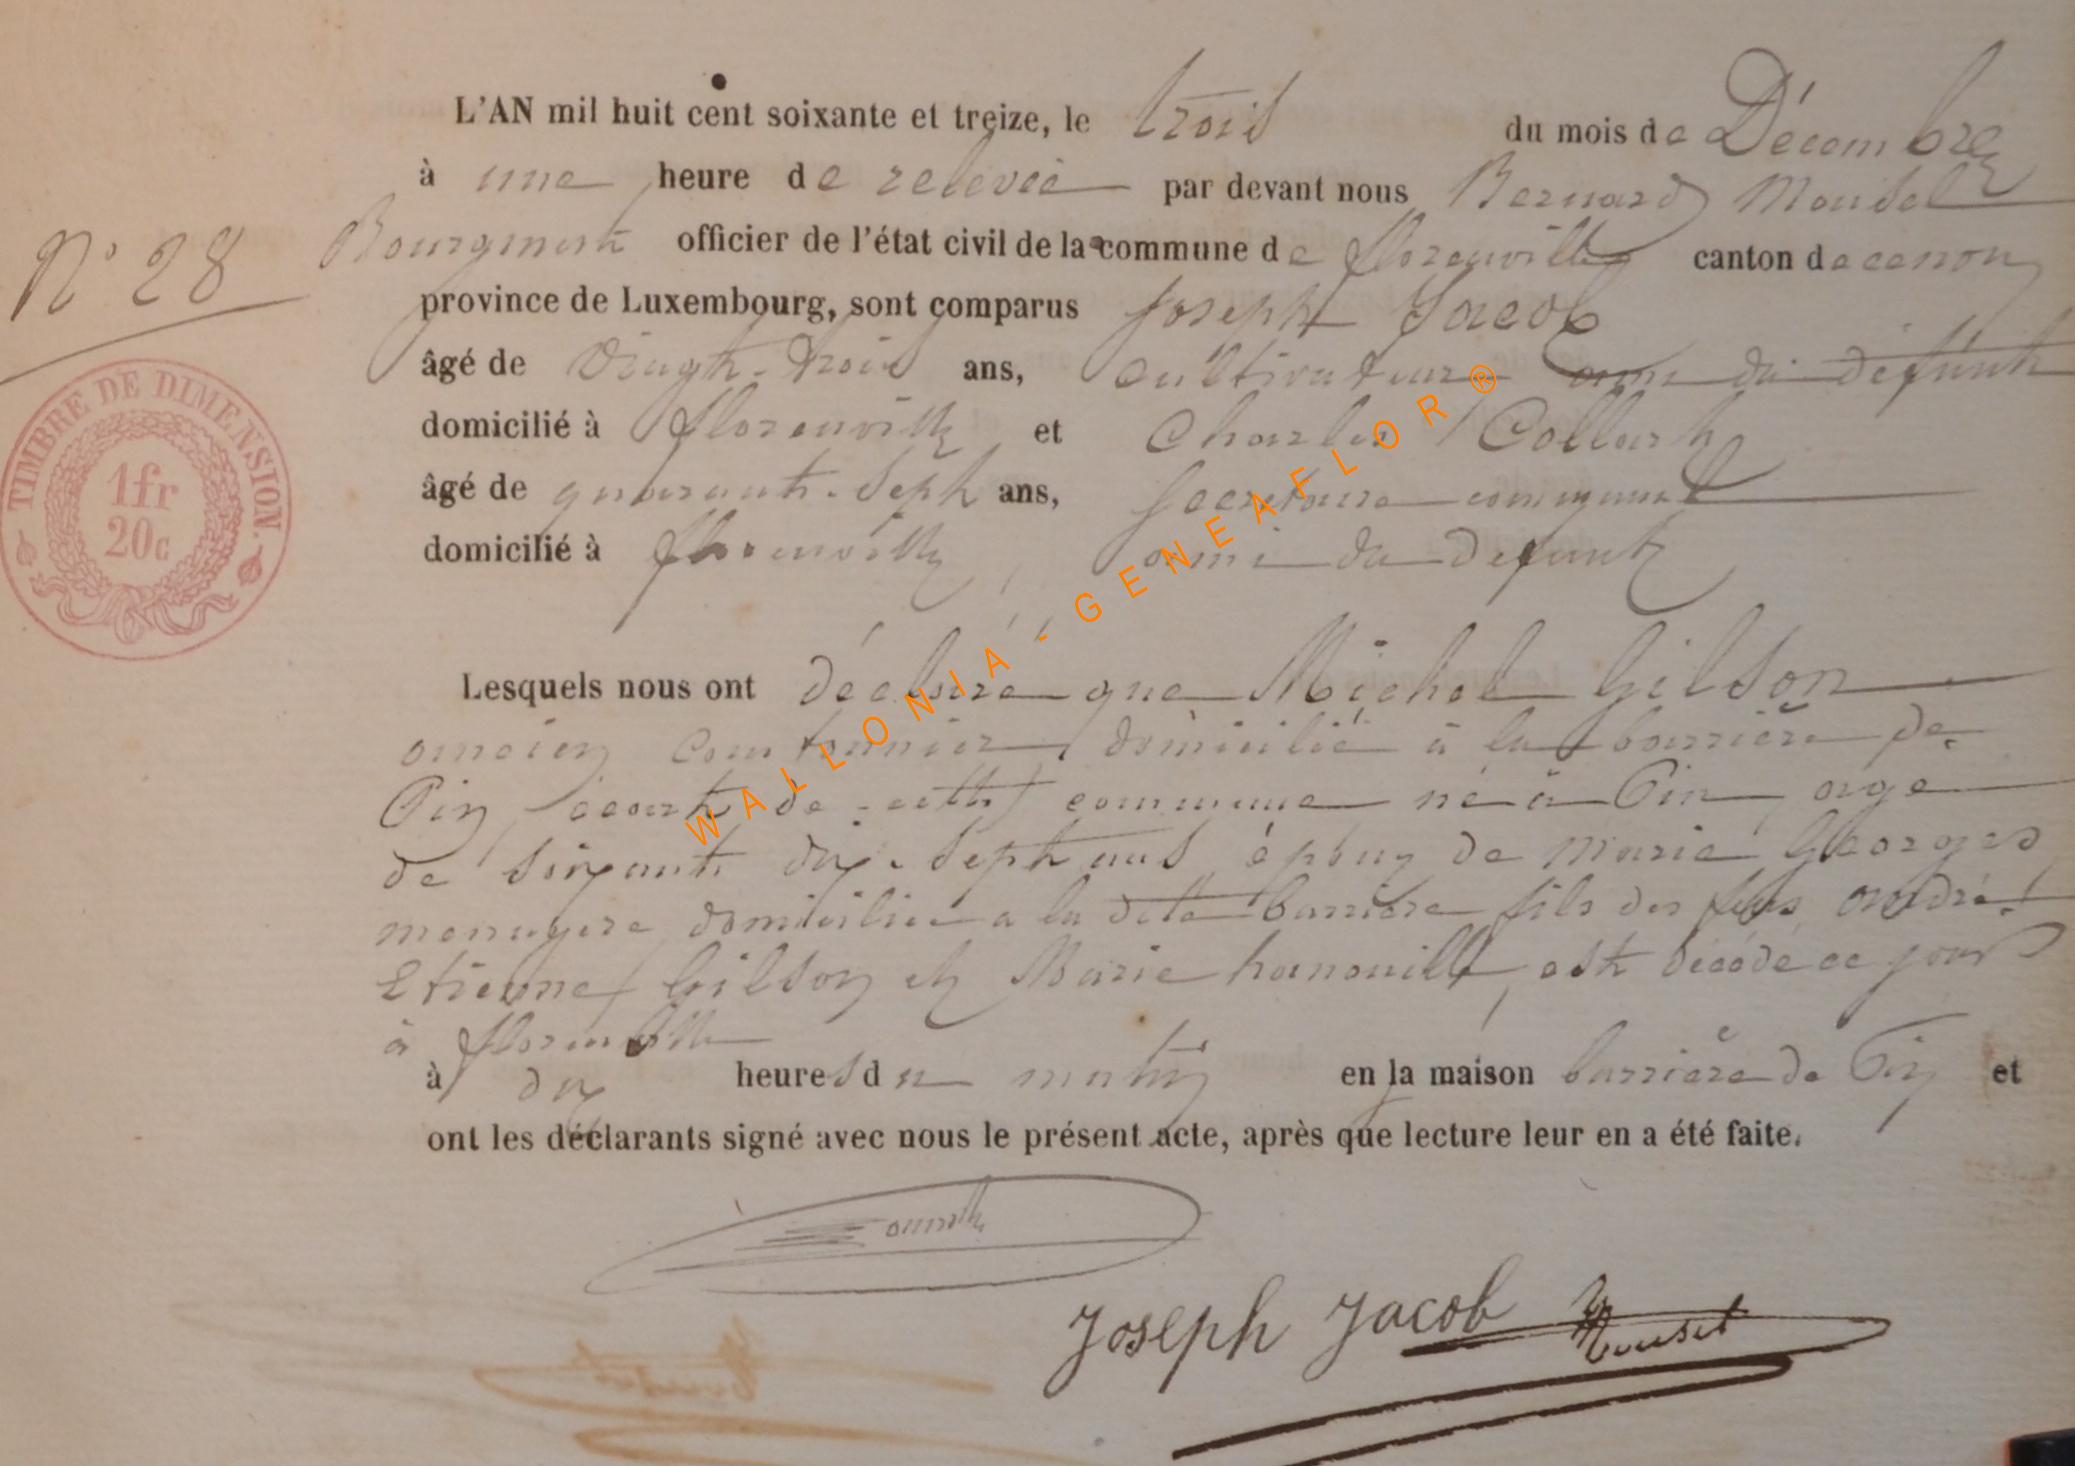 L'AN mil huit cent soixante et treize, le trois du mois de Décembre
à une heure de relevée par devant nous Bernard
N° 28
Bourgmestre officier de l'état civil de la commune de florenville canton de
province de Luxembourg, sont comparus Joseph Jacob
âgé de Vingt-trois ans, cultivateur ami du défunt
domicilié à florenville et Charles Collart
âgé de quarante-sept ans, Secretaire communal
domicilié à florenville ami du défunt
TIMBRE DE DIMENSION.
1fr
20c
Lesquels nous ont déclaré que Michel Gilson
ancien cantonnier domicilié à la barrière de
Pin, écart de cette commune né à Pin, agé
de soixante dix-sept ans époux de Marie Georges
menagere domiciliée a la dite barrière fils des feus André
Etienne Gilson et Marie est décédé ce jour
à florenville
à dix heures du matin en la maison barrière de Pin et
ont les déclarants signé avec nous le présent acte, après que lecture leur en a été faite.
Joseph Jacob
WALLONIA-GENEAFLOR®